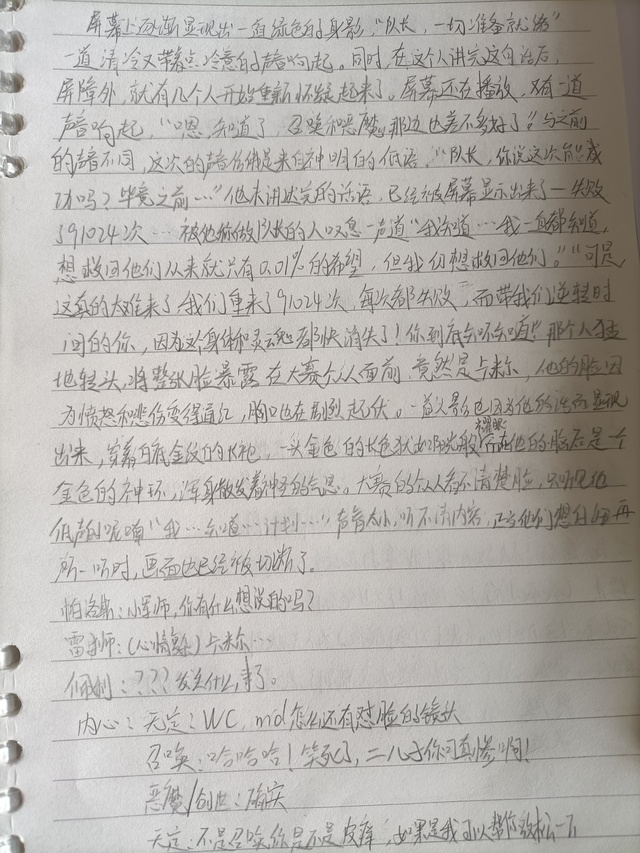 屏幕上逐渐显现出一道绿色的身影，“队长，一切准备就绪”
一道清冷又带着点冷意的声音响起。同时，在这个人讲完这句话后，
屏障外，就有几个人开始重新怀疑起来了。屏幕还在播放，又有一道
声音响起，“嗯，知道了，召唤和恶魔那边也差不多好了”与之前
的声音不同，这次的声音仿佛是来自神明的低语，“队长，你说这次能成
功吗？毕竟之前……”他未讲述完的话语，已经被屏幕显示出来了—失败
了91024次…被他称做队长的人叹息一声道“我知道…我一直都知道，
想救回他们从来就只有0.01%的希望，但我仍想救回他们。”“可是
这真的太难了，我们重来了91024次，每次都失败，而带我们逆转时
间的你，因为这个身体和灵魂都快消失了！你到底知不知道！”那个人
地转头，将整张脸暴露在大赛众人面前，竟然是卡米尔，他的脸因
为愤怒和悲伤变得通红，胸口也在剧烈起伏。一道人影也因为他的话而显现
出来，白底金纹的长袍，一头金色的长发犹如阳光般耀眼，在他的脑后是一个
金色的神环，浑身散发着神圣的气息。大赛的众人看不清楚脸，只听见他
低声呢喃“我…知道…计划……”声音太小，听不清内容，正当他们想仔细再
听一听时，画面也已经被切断了。
帕洛斯：小军师，你有什么想说的吗？
雷狮：（心情复杂）卡米尔…
佩利：？？？发生什么事了。
内心：无定：WC，md怎么还有怼脸的镜头
召唤：哈哈哈！笑死了，二儿子你可真惨啊！
恶魔/创世：确实
无定：不是召唤你是不是皮痒，如果是我可以帮你放松一下